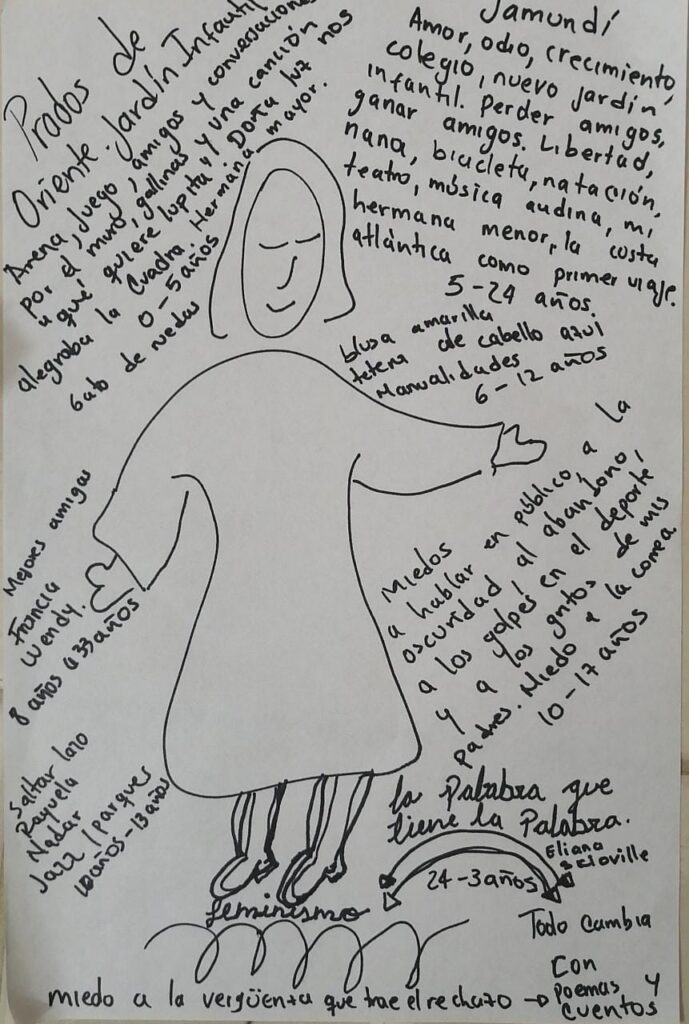 Prados de
Oriente. Jardín Infantil
Arena, Juego, amigos y conversaciones
por el muro, gallinas y una canción
"qué quiere lupita". Doña luz nos
alegraba la Cuadra. Hermana mayor.
0-5 años
Gato de ruedas
Jamundí
Amor, odio, crecimiento,
colegio, nuevo jardín
infantil. Perder amigos,
ganar amigos. Libertad,
nana, bicicleta, natación,
teatro, música andina, mi
hermana menor, la costa
atlántica como primer viaje.
5-24 años.
blusa amarilla
tetera de cabello azul
Manualidades
6-12 años
Mejores amigas
Francia
Wendy.
8 años a 33 años
Miedos
a hablar en público, a la
oscuridad, al abandono,
a los golpes en el deporte,
y a los gritos de mis
padres. Miedo a la correa
10-17 años
Saltar lazo
Rayuela
Nadar
Jazz / parques
10 años-13 años
la Palabra que
tiene la Palabra.
24-3 años
Eliana
Todo Cambia
feminismo
miedo a la vergüenza que trae el rechazo → Con
poemas y
cuentos